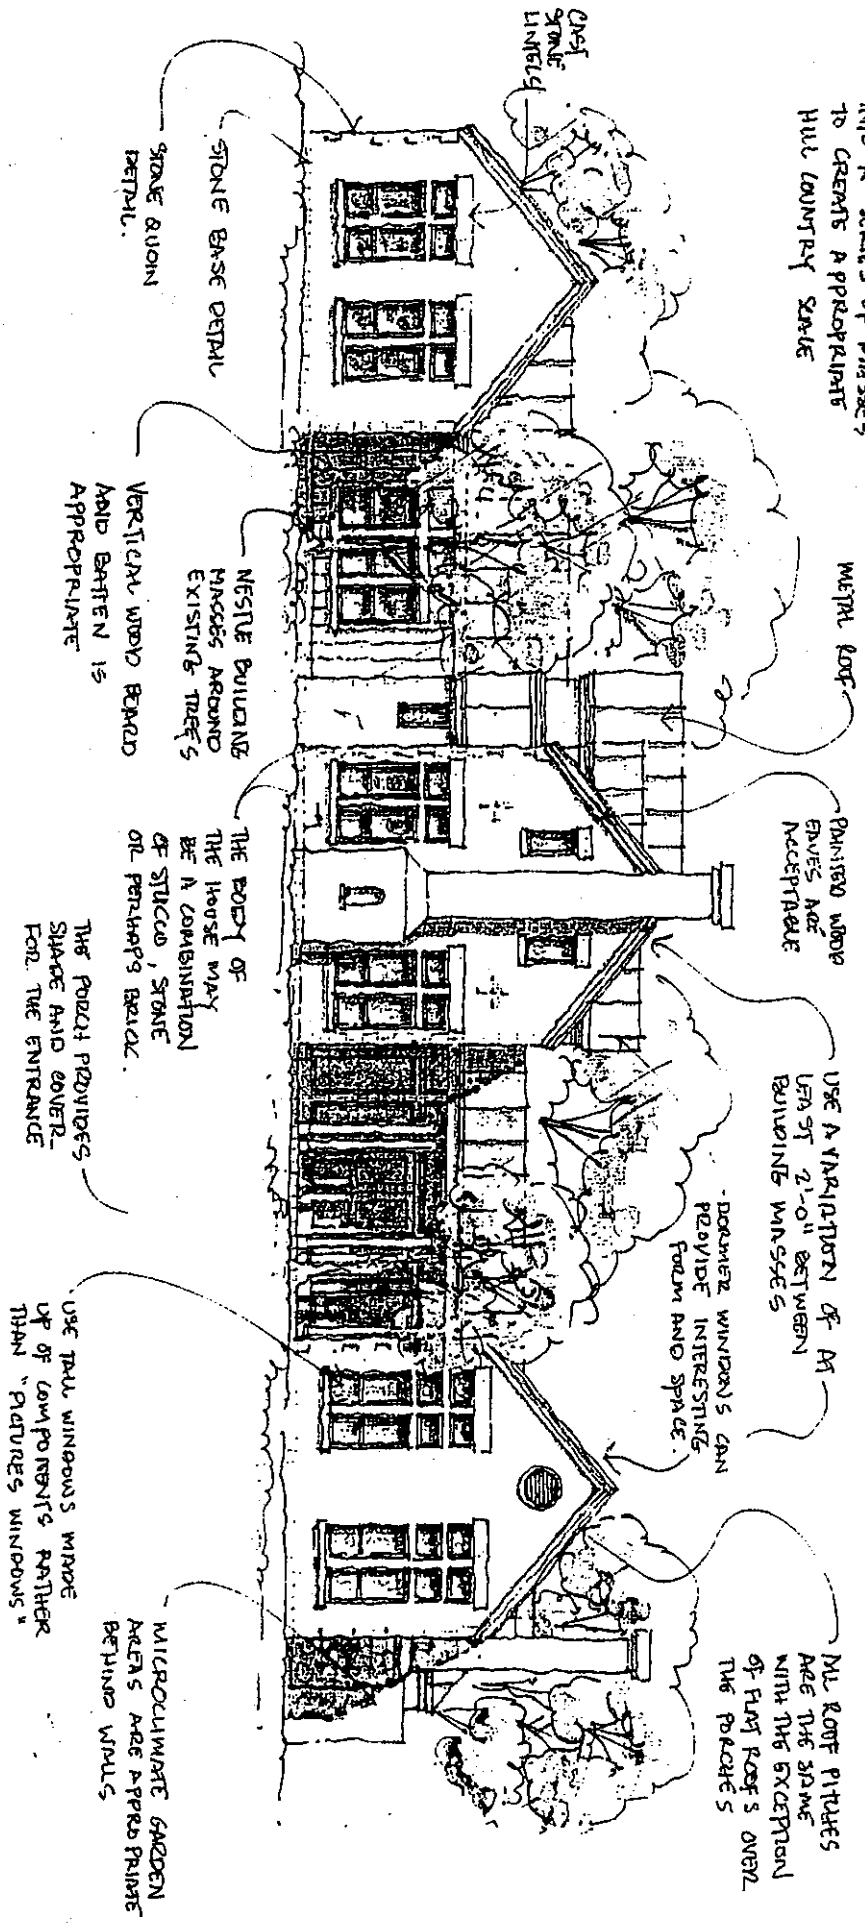 TO CREATE APPROPRIATE
HILL COUNTRY SCALE
CAST
STONE
LINTELS
METAL ROOF
PAINTED WOOD
EAVES ARE
ACCEPTABLE
USE A VARIATION OF AT
LEAST 2'-0" BETWEEN
BUILDING MASSES
- DORMER WINDOWS CAN
PROVIDE INTERESTING
FORM AND SPACE.
ALL ROOF PITCHES
ARE THE SAME
WITH THE EXCEPTION
OF FLAT ROOFS OVER
THE PORCHES
STONE QUOIN
DETAIL.
STONE BASE DETAIL
VERTICAL WOOD BOARD
AND BATTEN IS
APPROPRIATE
NESTLE BUILDING
MASSES AROUND
EXISTING TREES
THE BODY OF
THE HOUSE MAY
BE A COMBINATION
OF STUCCO, STONE
OR PERHAPS BRICK.
THE PORCH PROVIDES
SHADE AND COVER
FOR THE ENTRANCE
USE TALL WINDOWS MADE
UP OF COMPONENTS RATHER
THAN "PICTURES WINDOWS"
MICROCLIMATE GARDEN
AREAS ARE APPROPRIATE
BEHIND WALLS